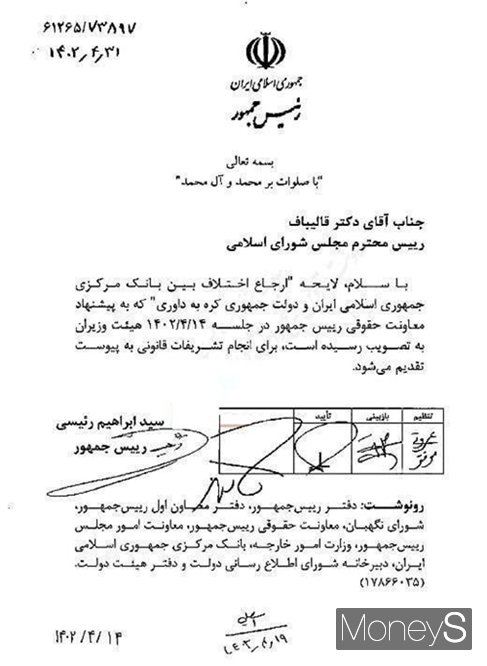 ۶۱۲۶۵/۷۳۸۹۷
۱۴۰۲/۴/۳۱
جمهوری اسلامی ایران
رئیس جمهور
بسمه تعالی
"با صلوات بر محمد و آل محمد"
جناب آقای دکتر قالیباف
رییس محترم مجلس شورای اسلامی
با سلام، لایحه "ارجاع اختلاف بین بانک مرکزی
جمهوری اسلامی ایران و دولت جمهوری کره به داوری" که به پیشنهاد
معاونت حقوقی رییس جمهور در جلسه ۱۴۰۲/۴/۱۴ هیئت وزیران
به تصویب رسیده است، برای انجام تشریفات قانونی به پیوست
تقدیم می‌شود.
سید ابراهیم رئیسی
رییس جمهور
تنظیم بازبینی تأیید
رونوشت: دفتر رییس‌جمهور، دفتر معاون اول رییس‌جمهور،
شورای نگهبان، معاونت حقوقی رییس‌جمهور، معاونت امور مجلس
رییس‌جمهور، وزارت امور خارجه، بانک مرکزی جمهوری اسلامی
ایران، دبیرخانه شورای اطلاع رسانی دولت و دفتر هیئت دولت.
(۱۷۸۶۶۰۳۵)
۱۴۰۲/۴/۱۴
MoneyS